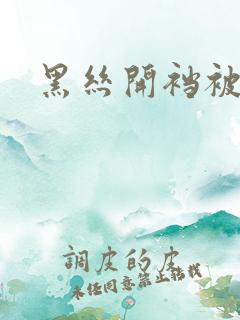 黑丝開裆被
調皮的皮
未经同意禁止转载